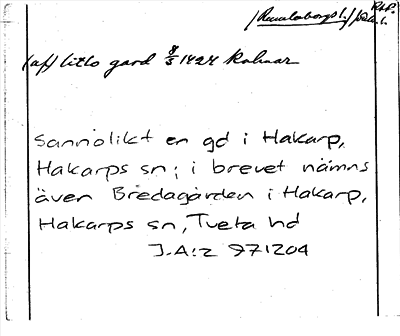 /Rumlaborgs l./
(af) litlo gard 8/5 1424 Kalmar
Sannolikt en gd i Hakarp,
Hakarps sn; i brevet nämns
även Bredagården i Hakarp,
Hakarps sn, Tveta hd
J.A:z 971204